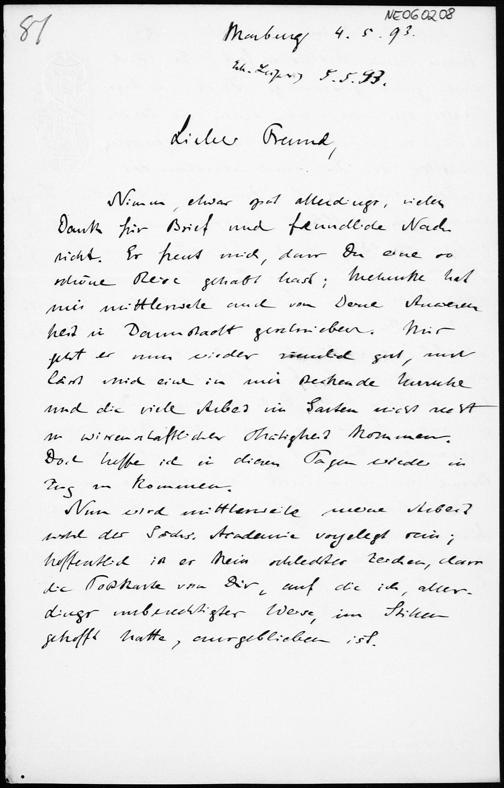 81
NE060208
Marburg 4.5.93.
Erh. Leipzig 5.5.93.
Lieber Freund,
Nimm, etwas spät allerdings, vielen
Dank für Brief und freundliche Nach
richt. Es freut mich, dass Du eine so
schöne Reise gehabt hast; Mehnke hat
mir mittlerweile auch von Deiner Anwesen
heit in Darmstadt geschrieben. Mir
geht es nun wieder ziemlich gut, nur
lässt mich eine in mir steckende Unruhe
und die viele Arbeit im Garten nicht recht
zu wissenschaftlicher Thätigkeit kommen.
Doch hoffe ich in diesen Tagen wieder in
Zug zu kommen.
Nun wird mittlerweile meine Arbeit
wohl der Sächs. Academie vorgelegt sein;
hoffentlich ist es kein schlechtes Zeichen, dass
die Postkarte von Dir, auf die ich, aller-
dings unberechtigter Weise, im Stillen
gehofft hatte, ausgeblieben ist.